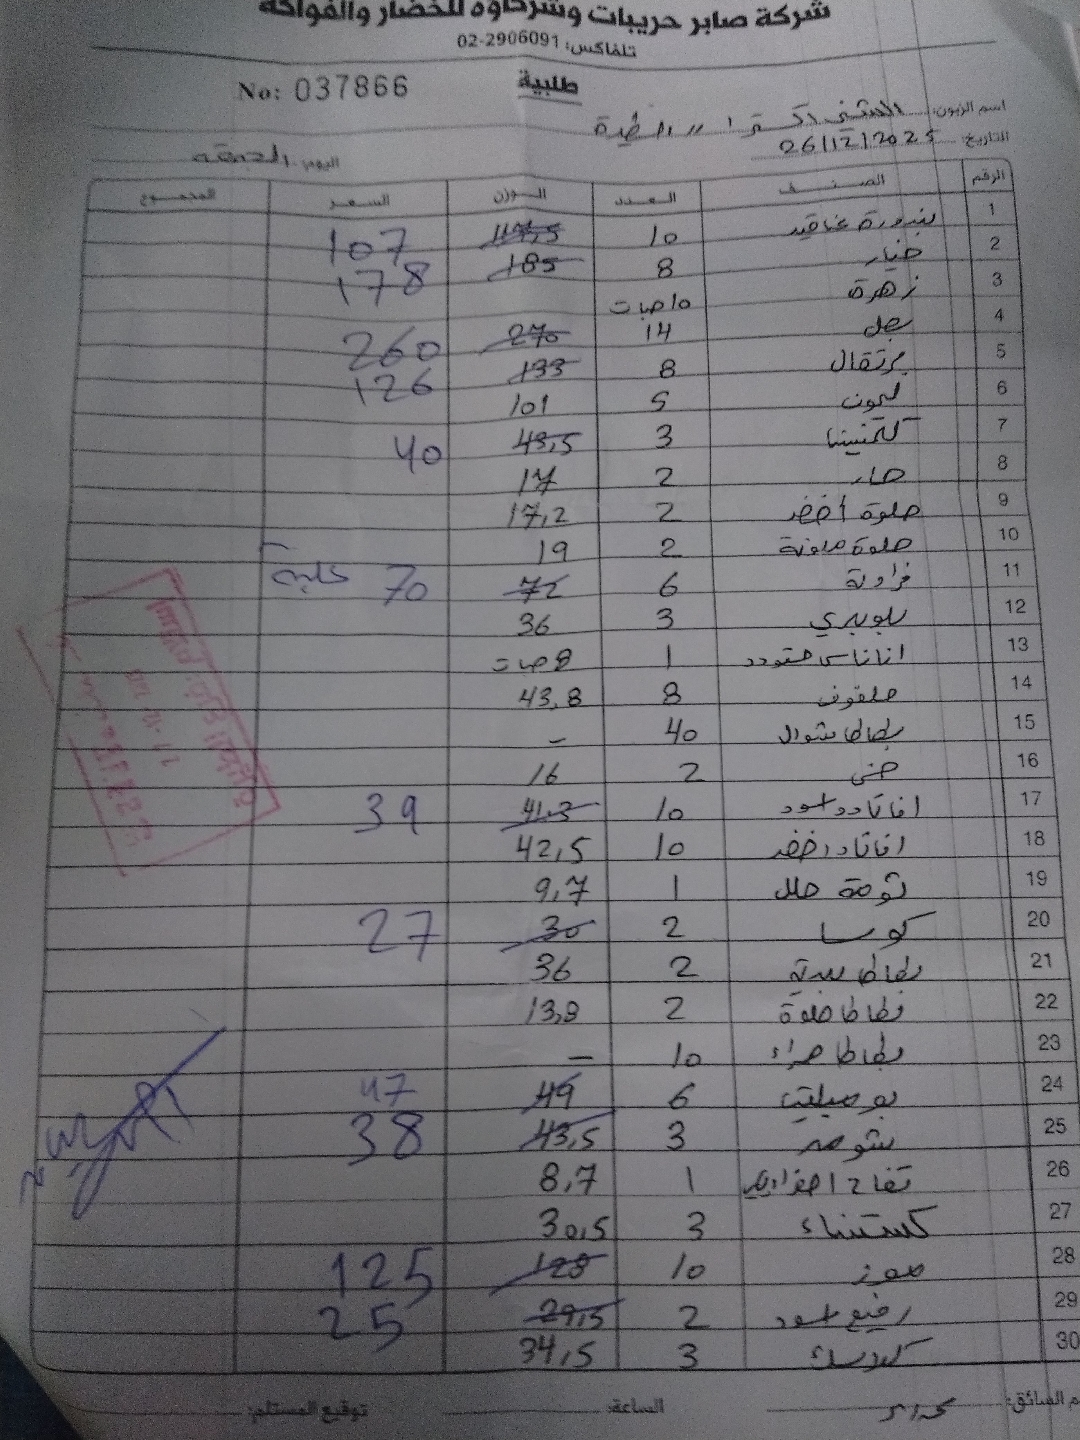 شركة صابر حريبات وشركاؤه للخضار والفواكه
تلفاكس: 02-2906091
طلبية
No: 037866
اسم الزبون:
التاريخ: 26/12/2025 اليوم: الجمعة
الرقم الصنف العدد الوزن السعر المجموع
1 بندورة عناقيد 10 107
2 خيار 8 185 178
3 زهرة 10 حبات
4 بصل 14 270 260
5 برتقال 8 133 126
6 ليمون 5 101
7 كلمنتينا 3 43,5 40
8 حار 2 17
9 حلوة اخضر 2 17,2
10 حلوة ملونة 2 19
11 فراولة 6 72 70 علبة
12 بلوبيري 3 36
13 اناناس 1 8 حبات
14 ملفوف 8 43,8
15 بطاطا شوال 40 -
16 خس 2 16
17 افاكادو اسود 10 41.3 39
18 افاكادو اخضر 10 42,5
19 ثومة 1 9,7
20 كوسا 2 30 27
21 بطاطا 2 36
22 بطاطا حلوة 2 13,8
23 بطاطا حمراء 10 -
24 6 49 47
25 شومر 3 43,5 38
26 تفاح اصفر 1 8,7
27 كستناء 3 30,5
28 موز 10 128 125
29 رفيع اسود 2 29,5 25
30 3 34,5
السائق: الساعة: توقيع المستلم: